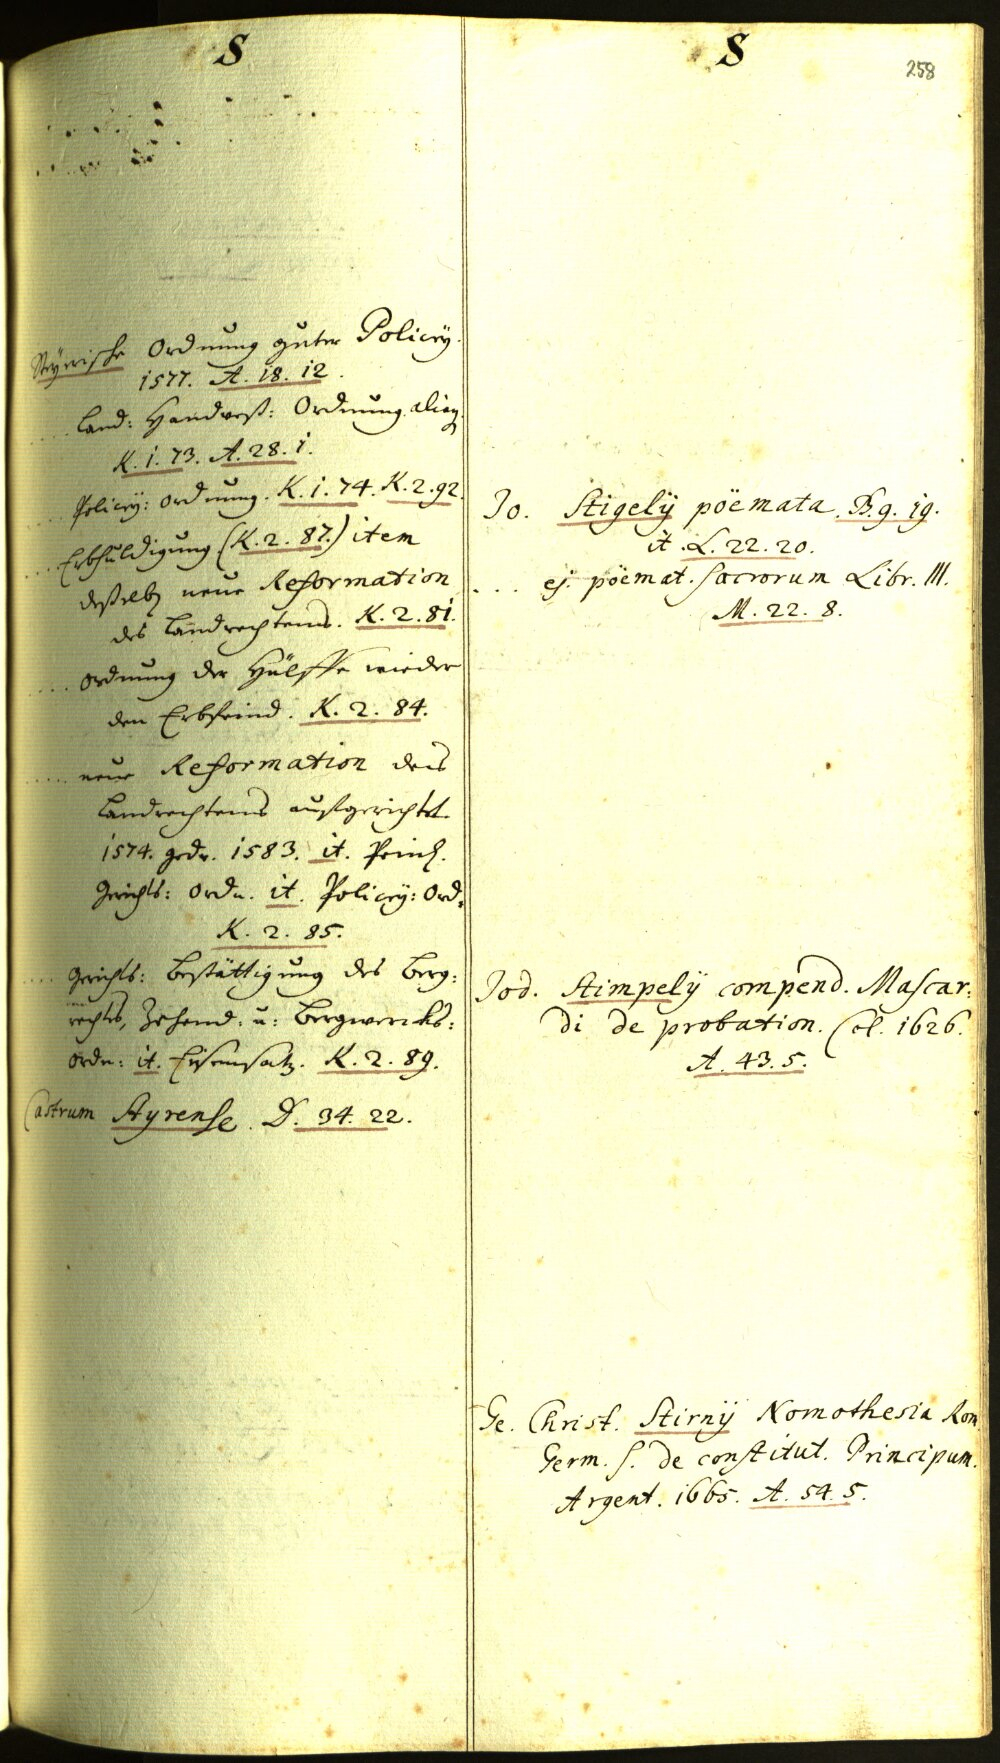 S
Steÿrische Ordnung guter Policeÿ.
1577. A. 18. 12.
.... Land: Handvest: Ordnung.
K. 1. 73. A. 28. 1.
.... Policeÿ: Ordnung. K. 1. 74. K. 2. 92.
.... Erbhuldigung (K. 2. 87.) item
deßelb neue Reformation
des Landrechtens. K. 2. 81.
.... Ordnung der Hülffe wieder
den Erbfeind. K. 2. 84.
.... neue Reformation des
Landrechtens aufgerichtet
1574. gedr. 1583. it. Peinl.
Gerichts: Ordn. it. Policeÿ: Ord.
K. 2. 85.
.... Gerichts: Bestättigung des Berg:
rechts, Zehend: u: Bergwercks:
Ordn: it. Eisensatz. K. 2. 89.
Castrum Styrense. D. 34. 22.
S
258
Jo. Stigelÿ pöemata. B. 9. 19.
it. L. 22. 20.
... ej. pöemat. sacrorum Libr. III.
M. 22. 8.
Jod. Stimpelÿ compend. Mascar:
di de probation. Col. 1626.
A. 43. 5.
Ge. Christ. Stirnÿ Nomothesia Rom.
Germ. s. de constitut. Principum.
Argent. 1665. A. 54. 5.